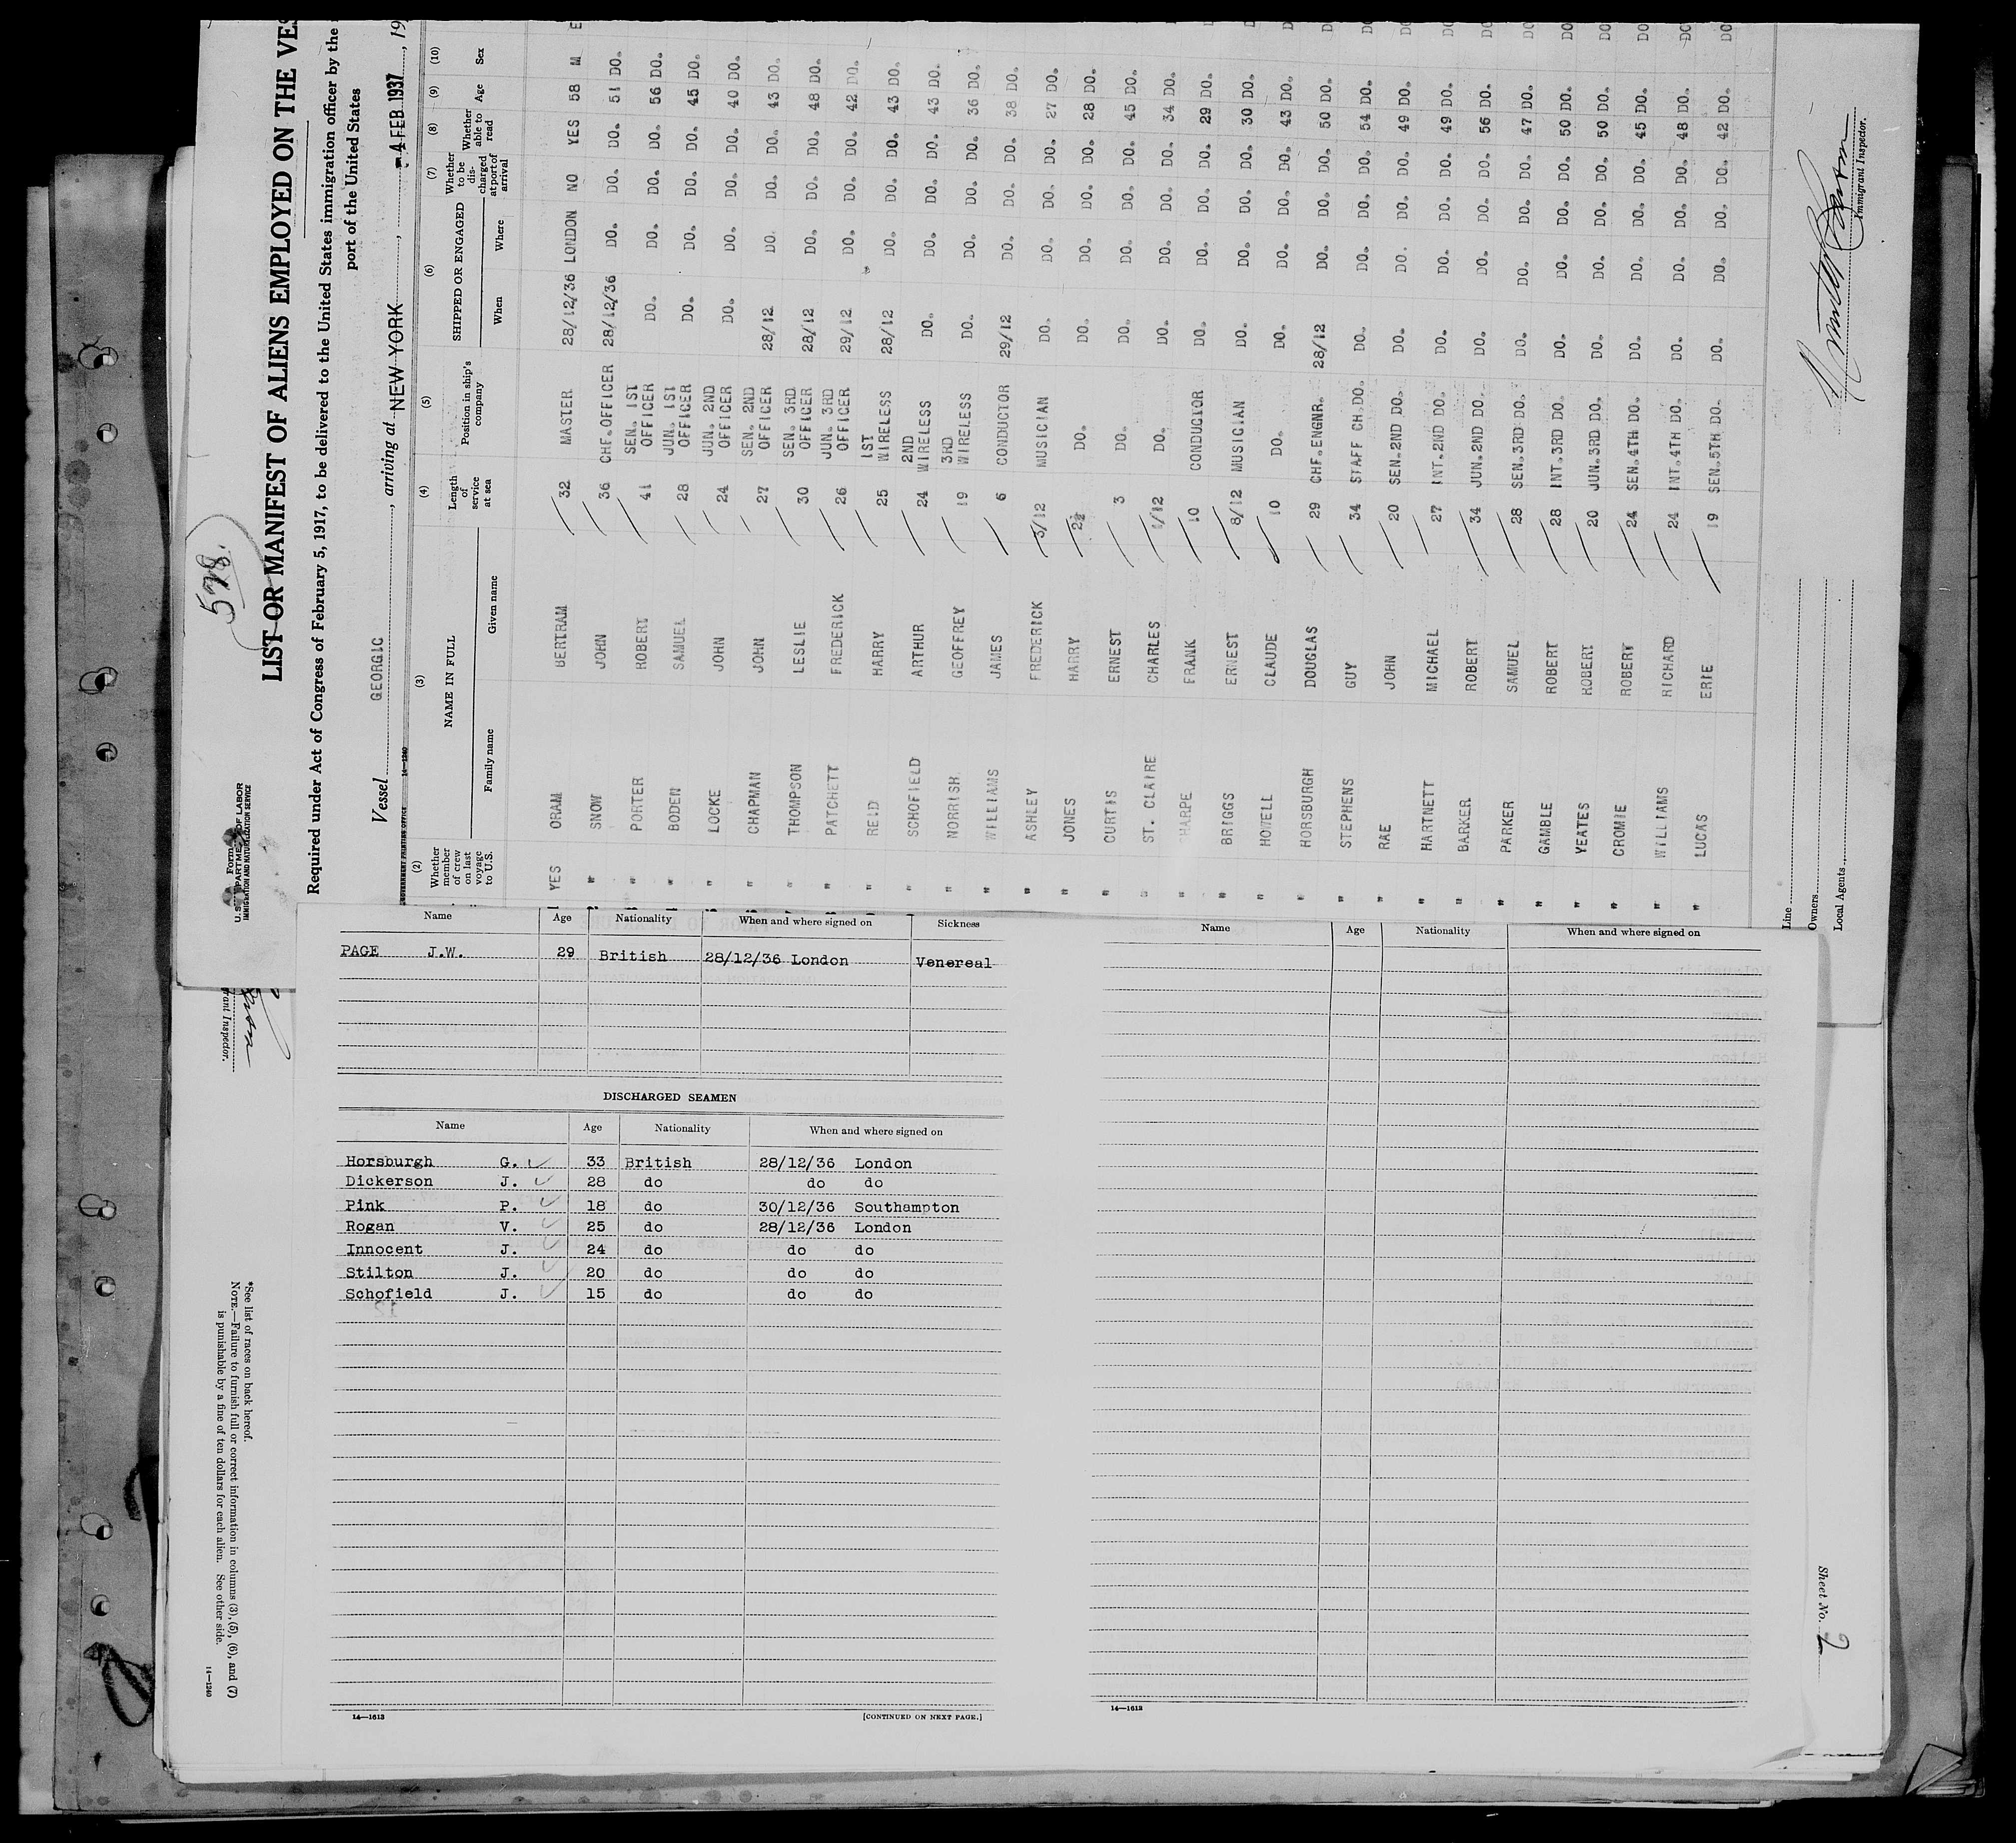 528.
Form
U. S. DEPARTMENT OF LABOR
IMMIGRATION AND NATURALIZATION SERVICE
LIST OR MANIFEST OF ALIENS EMPLOYED ON THE VES
Required under Act of Congress of February 5, 1917, to be delivered to the United States immigration officer by the
port of the United States
Vessel GEORGIC, arriving at NEW YORK, 4 FEB 1937, 19
GOVERNMENT PRINTING OFFICE 14—1240
(2) Whether member of crew on last voyage to U.S. (3) NAME IN FULL Family name Given name (4) Length of service at sea (5) Position in ship's company (6) SHIPPED OR ENGAGED When Where (7) Whether to be discharged at port of arrival (8) Whether able to read (9) Age (10) Sex
1 YES ORAM BERTRAM 32 MASTER 28/12/36 LONDON NO YES 58 M E
" SNOW JOHN 36 CHF.OFFICER 28/12/36 DO. DO. DO. 51 DO. DO
" PORTER ROBERT 41 SEN. 1ST OFFICER DO. DO. DO. DO. 56 DO.
" BODEN SAMUEL 28 JUN. 1ST OFFICER DO. DO. DO. DO. 45 DO.
" LOCKE JOHN 24 JUN. 2ND OFFICER DO. DO. DO. DO. 40 DO.
" CHAPMAN JOHN 27 SEN. 2ND OFFICER 28/12 DO. DO. DO. 43 DO.
" THOMPSON LESLIE 30 SEN. 3RD OFFICER 28/12 DO. DO. DO. 48 DO.
" PATCHETT FREDERICK 26 JUN. 3RD OFFICER 29/12 DO. DO. DO. 42 DO.
" REID HARRY 25 1ST WIRELESS 28/12 DO. DO. DO. 43 DO.
" SCHOFIELD ARTHUR 24 2ND WIRELESS DO. DO. DO. DO. 43 DO.
" NORRISH GEOFFREY 19 3RD WIRELESS DO. DO. DO. DO. 36 DO.
" WILLIAMS JAMES 6 CONDUCTOR 29/12 DO. DO. DO. 38 DO.
" ASHLEY FREDERICK 3/12 MUSICIAN DO. DO. DO. DO. 27 DO.
" JONES HARRY 2½ DO. DO. DO. DO. DO. 28 DO.
" CURTIS ERNEST 3 DO. DO. DO. DO. DO. 45 DO.
" ST. CLAIRE CHARLES 1/12 DO. DO. DO. DO. DO. 34 DO.
" FRANK 10 CONDUCTOR DO. DO. DO. DO. 29 DO.
" BRIGGS ERNEST 8/12 MUSICIAN DO. DO. DO. DO. 30 DO.
" HOWELL CLAUDE 10 DO. DO. DO. DO. DO. 43 DO.
" HORSBURGH DOUGLAS 29 CHF.ENGNR. 28/12 DO. DO. DO. 50 DO.
" STEPHENS GUY 34 STAFF CH.DO. DO. DO. DO. DO. 54 DO.
" RAE JOHN 20 SEN.2ND DO. DO. DO. DO. DO. 49 DO.
" HARTNETT MICHAEL 27 INT.2ND DO. DO. DO. DO. DO. 49 DO.
" BARKER ROBERT 34 JUN.2ND DO. DO. DO. DO. DO. 56 DO.
" PARKER SAMUEL 28 SEN.3RD DO. DO. DO. DO. DO. 47 DO.
" GAMBLE ROBERT 28 INT.3RD DO. DO. DO. DO. DO. 50 DO. DO
" YEATES ROBERT 20 JUN.3RD DO. DO. DO. DO. DO. 50 DO. DO
" CROMIE ROBERT 24 SEN.4TH DO. DO. DO. DO. DO. 45 DO. DO
" WILLIAMS RICHARD 24 INT.4TH DO. DO. DO. DO. DO. 48 DO. DO
" LUCAS ERIE 19 SEN.5TH DO. DO. DO. DO. DO. 42 DO. DO
Line
Owners
Local Agents
Immigrant Inspector.
Name Age Nationality When and where signed on Sickness
PAGE J.W. 29 British 28/12/36 London Venereal
DISCHARGED SEAMEN
Name Age Nationality When and where signed on
Horsburgh G. 33 British 28/12/36 London
Dickerson J. 28 do do do
Pink P. 18 do 30/12/36 Southampton
Rogan V. 25 do 28/12/36 London
Innocent J. 24 do do do
Stilton J. 20 do do do
Schofield J. 15 do do do
14—1613
[CONTINUED ON NEXT PAGE.]
Name Age Nationality When and where signed on
14—1613
rant Inspector.
*See list of races on back hereof.
NOTE.—Failure to furnish full or correct information in columns (3), (5), (6), and (7)
is punishable by a fine of ten dollars for each alien. See other side.
14—1240
Sheet No. 2